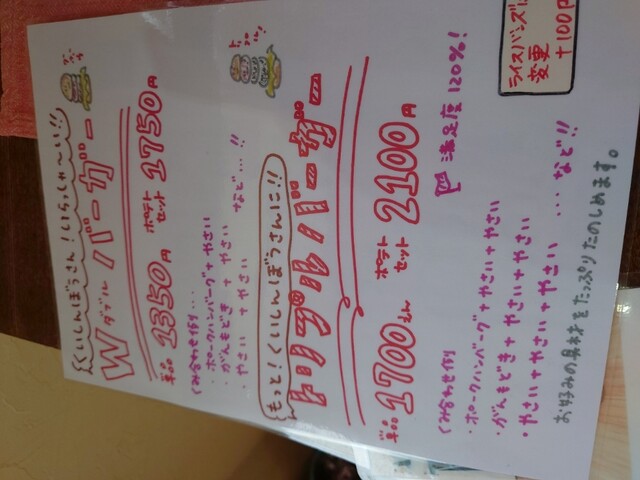 くいしんぼうさん！いらっしゃ〜い!!
Wダブルバーガー
単品 1350円 ポテトセット 1750円
くみ合わせ例…
・ポークハンバーグ+やさい
・がんもどき+やさい
・やさい+やさい など…!!
もっと！くいしんぼうさんに!!
トリプルバーガー
単品 1700えん ポテトセット 2100円
くみ合わせ例 満足度120%!
・ポークハンバーグ+やさい+やさい
・がんもどき+やさい+やさい
・やさい+やさい+やさい … など!!
お好みの具材をたっぷりたのしめます。
ライスバンズに
変更
+100円